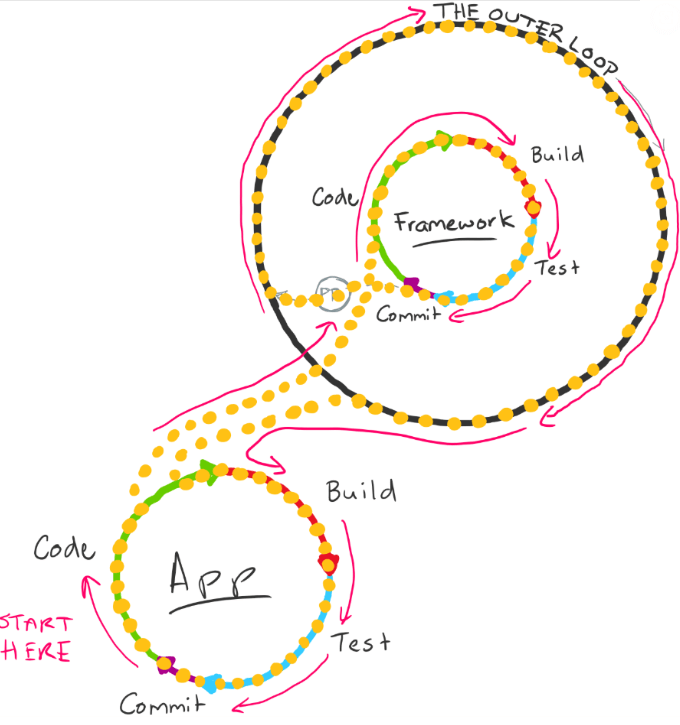 THE OUTER LOOP
Build
Code
Framework
Test
PR
Commit
Build
Code
App
START
HERE
Test
Commit